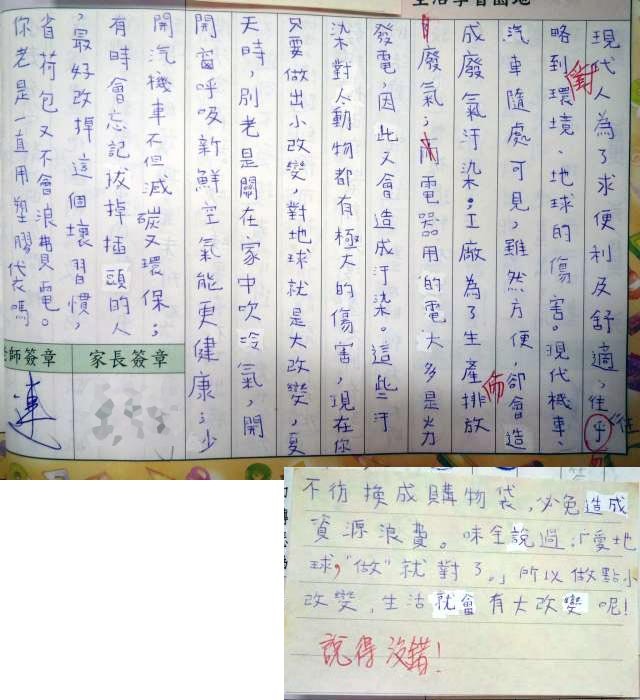 生活學習園地
現代人為了求便利及舒適，往乎
衝
往
略到環境、地球的傷害。現代機車、
汽車隨處可見，雖然方便，卻會造
成廢氣汙染。工廠為了生產排放
佈
廢氣；而電器用的電大多是火力
發電，因此又會造成汙染。這些汙
染對人動物都有極大的傷害，現在你
只要做出小改變，對地球就是大改變，夏
天時，別老是關在家中吹冷氣，開
開窗呼吸新鮮空氣能更健康；少
開汽機車不但減碳又環保；
有時會忘記拔掉插頭的人
，最好改掉這個壞習慣，
省荷包又不會浪費電。
你老是一直用塑膠代衣嗎
家長簽章
師簽章
連
不彷換成購物袋，必免造成
資源浪費。味全說過：「愛地
球，"做"就對了。」所以做點小
改變，生活就會有大改變呢！
說得沒錯！